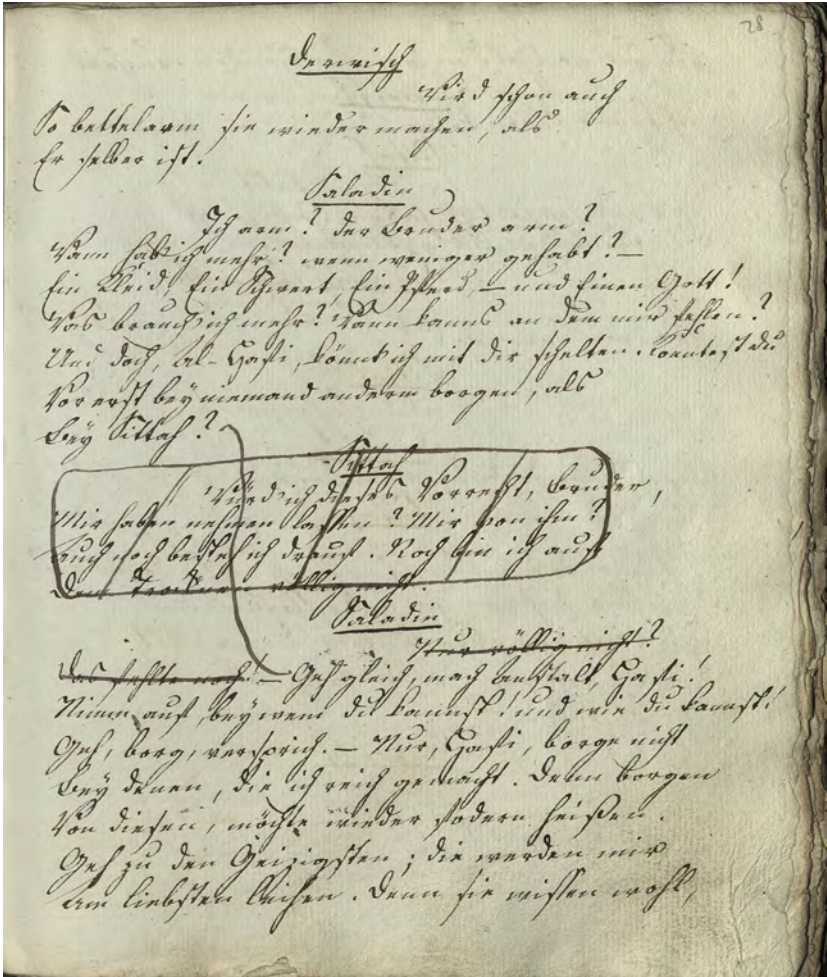 28
Derwisch
Wird schon auch
So bettelarm sie wieder machen, als
Er selber ist.
Saladin
Ich arm? der Bruder arm?
Wenn hab' ich mehr? wenn weniger gehabt? —
Ein Kleid, Ein Schwert, Ein Pferd, — und Einen Gott!
Was brauch' ich mehr? Wann kanns an dem mir fehlen?
Und doch, Al-Hafi, könnt' ich mit dir schelten. Konntest du
Vor erst bey niemand anderm borgen, als
Bey Sittah?
Sittah
Würd' ich dieses Vorrecht, Bruder,
Mir haben nehmen lassen? Mir von ihm?
Auch noch besteh' ich drauf. Noch bin ich auf
Dem Trocknen völlig nicht.
Saladin
Nur völlig nicht?
Das fehlte noch! — Geh gleich, mach Anstalt, Hafi!
Nimm auf, bey wem du kannst! und wie du kannst!
Geh, borg, versprich. — Nur, Hafi, borge nicht
Bey denen, die ich reich gemacht. Denn borgen
Von diesen, möchte wieder fodern heißen.
Geh zu den Geizigsten; die werden mir
Am liebsten leihen. Denn sie wissen wohl,